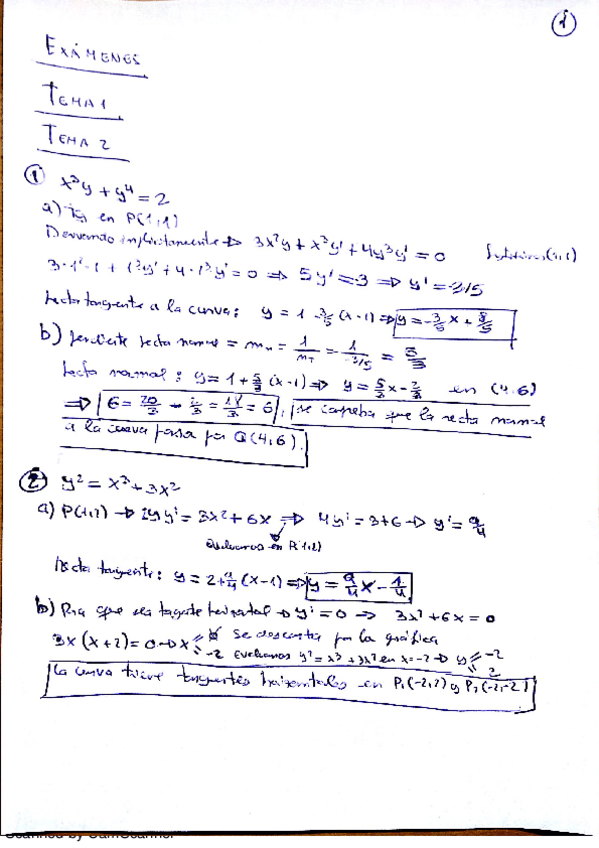 1
EXÁMENES
TEMA 1
TEMA 2
① x³y + y⁴ = 2
a) en P(1,1)
Derivando implícitamente → 3x²y + x³y' + 4y³y' = 0
3·1²·1 + 1³y' + 4·1³y' = 0 ⇒ 5y' = -3 ⇒ y' = -3/5
Recta tangente a la curva: y = 1 - 3/5 (x-1) ⇒ y = -3/5 x + 8/5
b) pendiente recta normal = mₙ = 1/m_T = 1/-3/5 = 5/3
Recta normal: y = 1 + 5/3 (x-1) ⇒ y = 5/3 x - 2/3 en (4,6)
⇒ 6 = 20/3 - 2/3 = 18/3 = 6, se comprueba que la recta normal
a la curva pasa por Q(4,6).
② y² = x³ + 3x²
a) P(1,2) → 2yy' = 3x² + 6x ⇒ 4y' = 3+6 → y' = 9/4
evaluamos en P(1,2)
Recta tangente: y = 2 + 9/4 (x-1) ⇒ y = 9/4 x - 1/4
b) Para que sea tangente horizontal → y' = 0 → 3x² + 6x = 0
3x(x+2) = 0 → x = 0 se descarta por la gráfica
= -2 evaluamos y² = x³ + 3x² en x = -2 → y = -2
= 2
La curva tiene tangentes horizontales en P₁(-2,2) y P₂(-2,-2)
Scanned by CamScanner